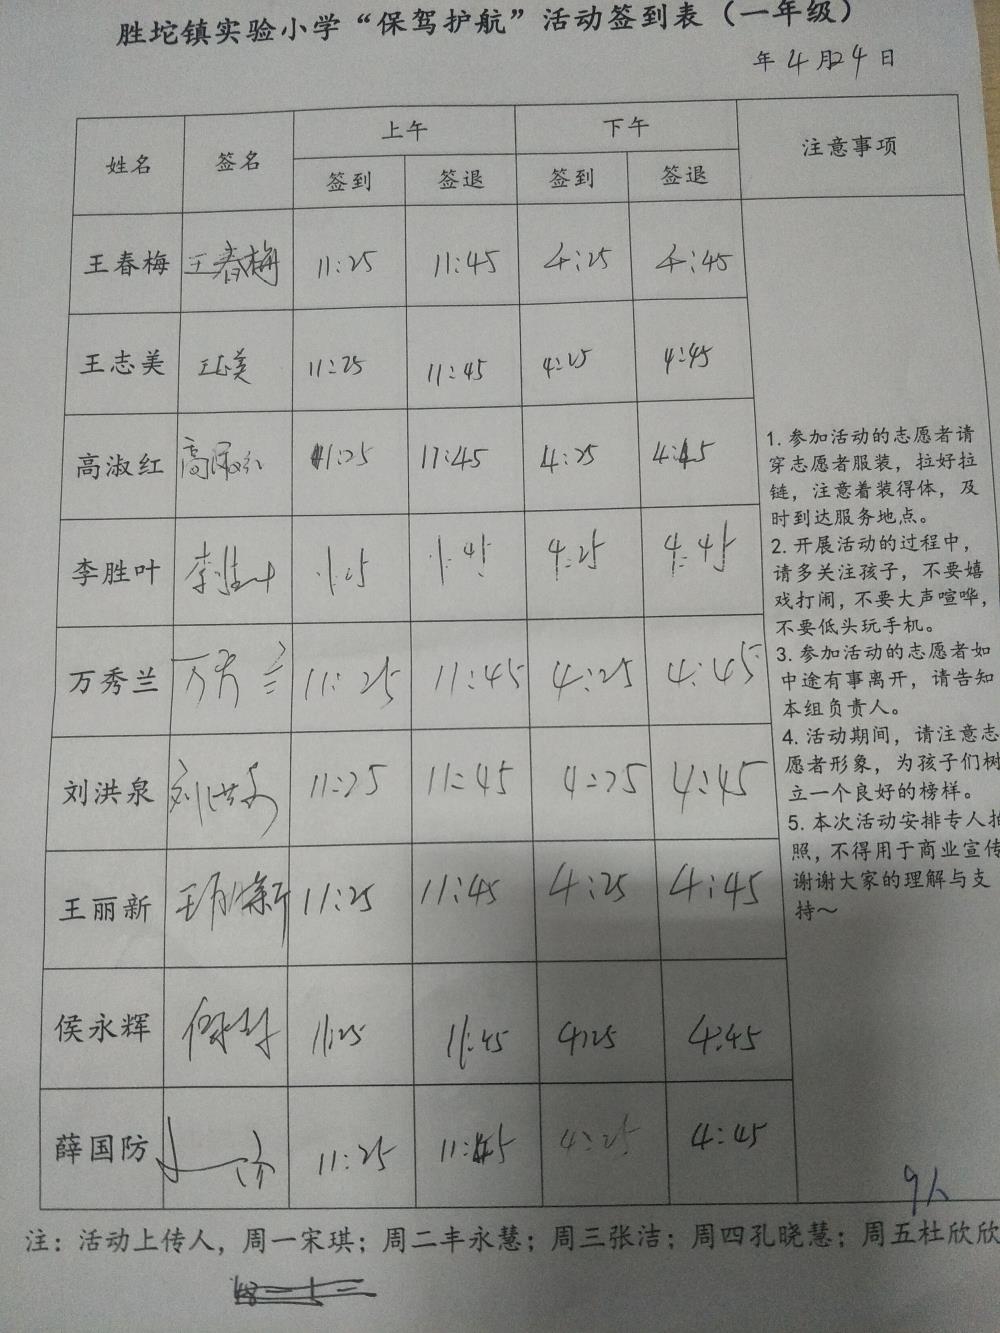 胜坨镇实验小学“保驾护航”活动签到表（一年级）
年 4 月 24 日
姓名 签名 上午 下午 注意事项
签到 签退 签到 签退
王春梅 王春梅 11:25 11:45 4:25 4:45
王志美 王志美 11:25 11:45 4:25 4:45
高淑红 高淑红 11:25 11:45 4:25 4:45
李胜叶 李胜叶 11:25 11:45 4:25 4:45
万秀兰 万秀兰 11:25 11:45 4:25 4:45
刘洪泉 刘洪泉 11:25 11:45 4:25 4:45
王丽新 王丽新 11:25 11:45 4:25 4:45
侯永辉 11:25 11:45 4:25 4:45
薛国防 11:25 11:45 4:25 4:45
1. 参加活动的志愿者请
穿志愿者服装，拉好拉
链，注意着装得体，及
时到达服务地点。
2. 开展活动的过程中，
请多关注孩子，不要嬉
戏打闹，不要大声喧哗，
不要低头玩手机。
3. 参加活动的志愿者如
中途有事离开，请告知
本组负责人。
4. 活动期间，请注意志
愿者形象，为孩子们树
立一个良好的榜样。
5. 本次活动安排专人拍
照，不得用于商业宣传
谢谢大家的理解与支
持～
9人
注：活动上传人，周一宋琪；周二丰永慧；周三张洁；周四孔晓慧；周五杜欣欣